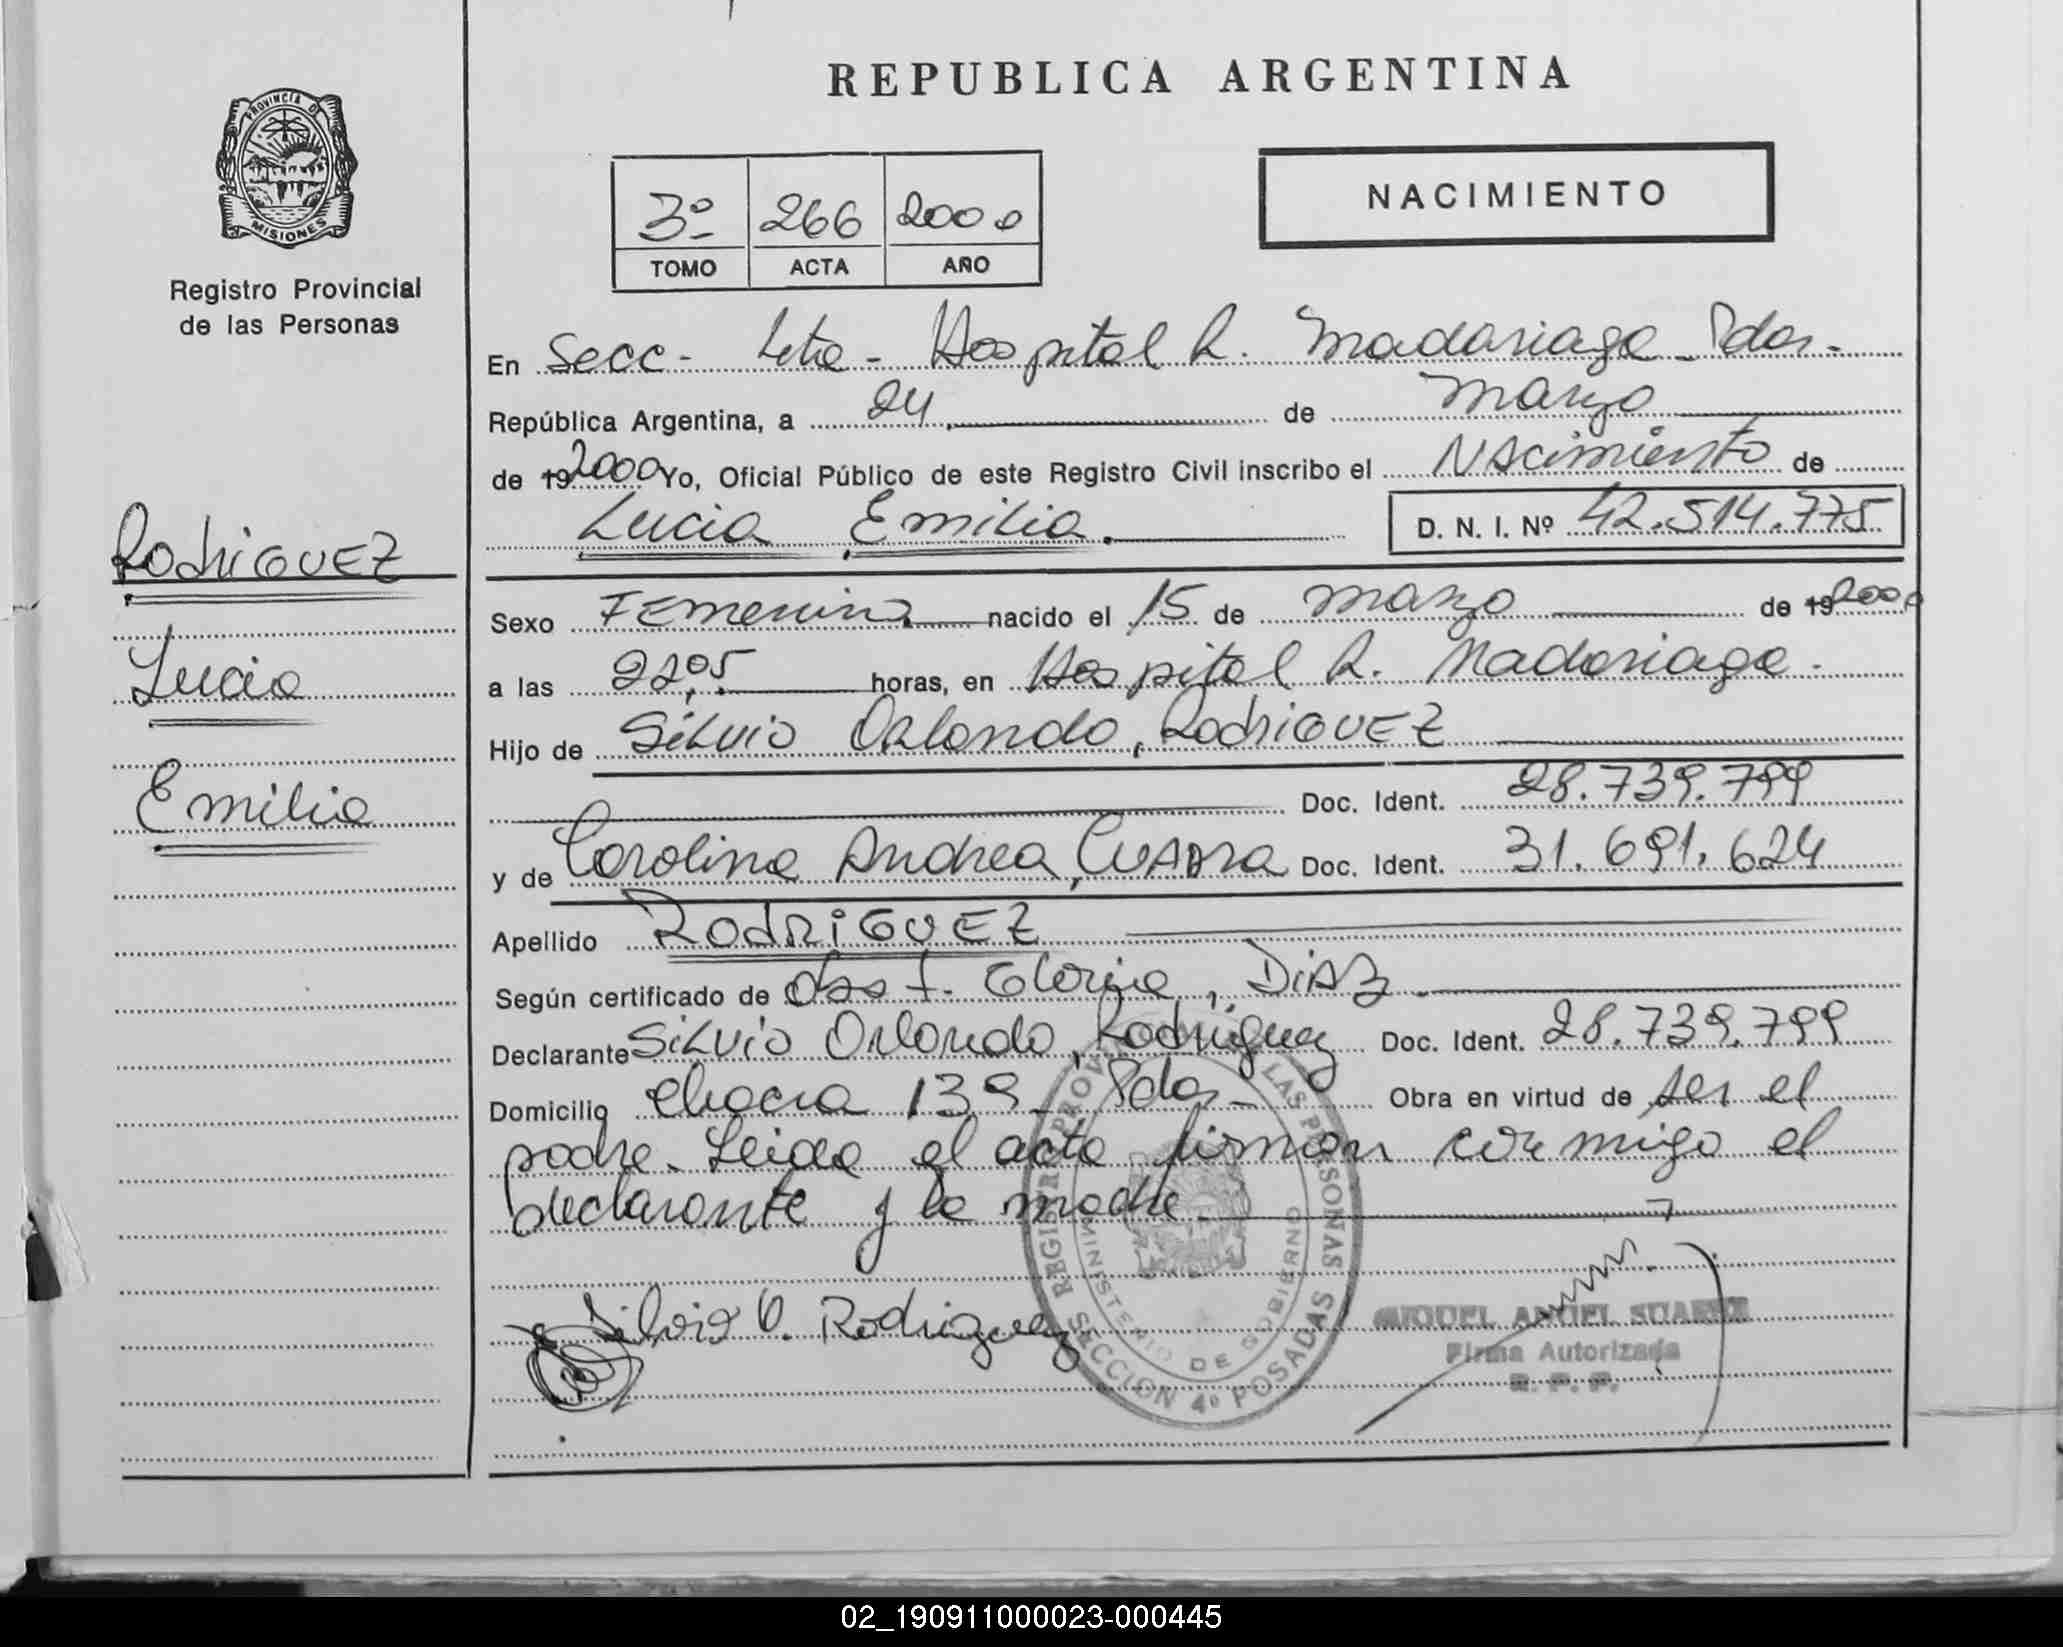 REPUBLICA ARGENTINA
PROVINCIA DE
MISIONES
Registro Provincial
de las Personas
3º 266 2000
TOMO ACTA AÑO
NACIMIENTO
En Secc- 4ta- Hospital R. Madariaga - Pdas.
República Argentina, a 24 de marzo
de 19 2000 Yo, Oficial Público de este Registro Civil inscribo el Nacimiento de
Lucia Emilia. D. N. I. Nº 42.514.775
RodriGUEZ
Lucia
Emilia
Sexo Femenino nacido el 15 de marzo de 19 2000
a las 22,05 horas, en Hospital R. Madariaga.
Hijo de Silvio Orlando, RodriGUEZ
Doc. Ident. 28.739.799
y de Carolina Andrea, Doc. Ident. 31.691.624
Apellido RodriGUEZ
Según certificado de Obst. Gloria, Diaz
Declarante Silvio Orlando, Rodriguez Doc. Ident. 28.739.799
Domicilio Chacra 139 - Pdas - Obra en virtud de ser el
padre. Leida el acta firman conmigo el
declarante y la madre
Silvio O. Rodriguez
REGISTRO PROV LAS PERSONAS
MINISTERIO DE GOBIERNO
SECCION 4º POSADAS
MIGUEL ANGEL SUAREZ
Firma Autorizada
R. P. P.
02_190911000023-000445